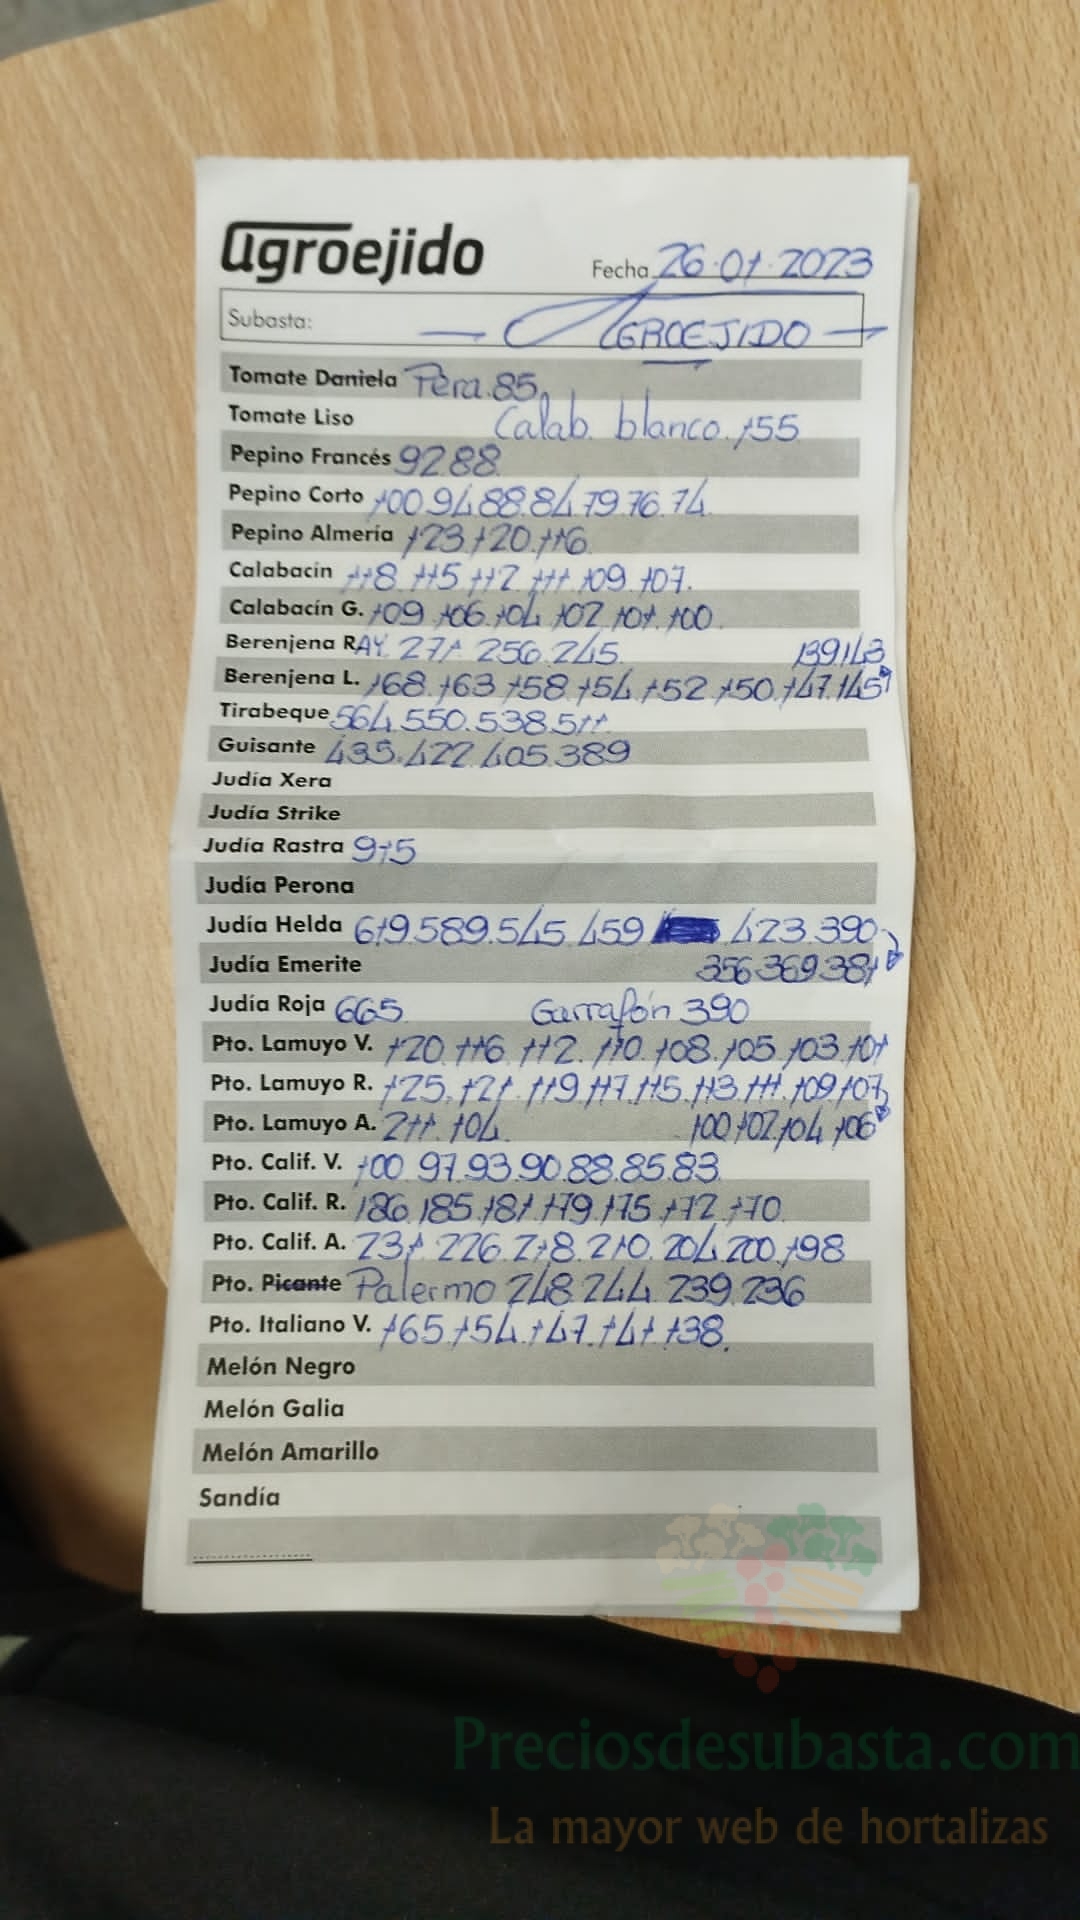 agroejido
Fecha 26.01.2023
Subasta: AGROEJIDO
Tomate Daniela Pera.85
Tomate Liso Calab. blanco. 155
Pepino Francés 92.88
Pepino Corto 100.94.88.84.79.76.74.
Pepino Almería 123.120.116.
Calabacín 118.115.112.111.109.107.
Calabacín G. 109.106.104.102.101.100.
Berenjena RAY. 271.256.245. 139.143
Berenjena L. 168.163.158.154.152.150.147.145
Tirabeque 564.550.538.511.
Guisante 435.422.405.389
Judía Xera
Judía Strike
Judía Rastra 915
Judía Perona
Judía Helda 619.589.545.459 423.390
Judía Emerite 356.369.381
Judía Roja 665. Garrafón 390
Pto. Lamuyo V. 120.116.112.110.108.105.103.101
Pto. Lamuyo R. 125.121.119.117.115.113.111.109.107
Pto. Lamuyo A. 211.104. 100.102.104.106
Pto. Calif. V. 100.97.93.90.88.85.83.
Pto. Calif. R. 186.185.181.179.175.172.170.
Pto. Calif. A. 231.226.218.210.204.200.198
Pto. Picante Palermo 248.244.239.236
Pto. Italiano V. 165.154.147.141.138.
Melón Negro
Melón Galia
Melón Amarillo
Sandía
Preciosdesubasta.com
La mayor web de hortalizas